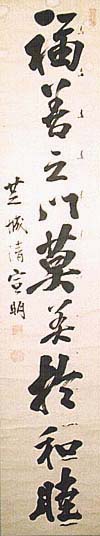 福善之門莫美於和睦
芝城清宣明